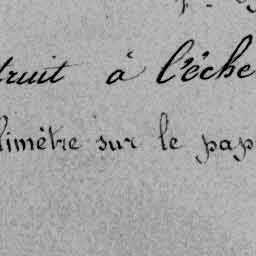 truit à l'éche
limètre sur le pap